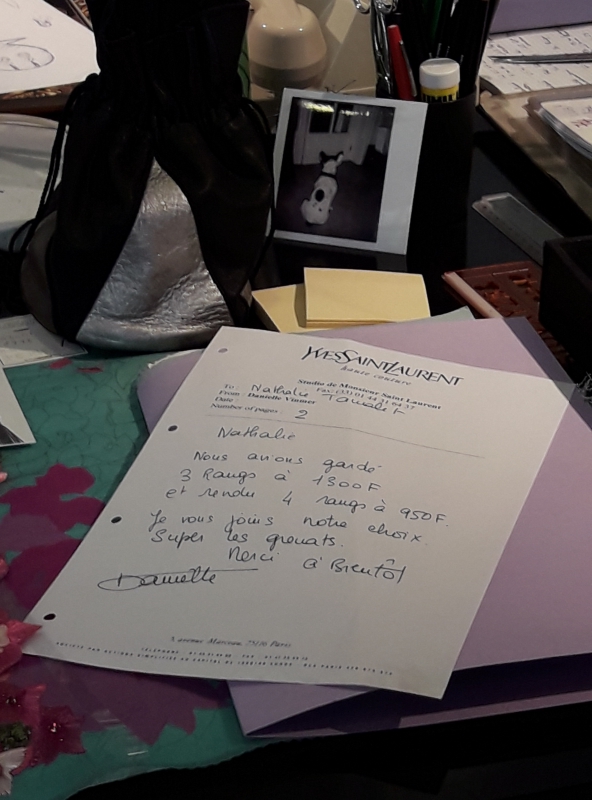 YVES SAINT LAURENT
haute couture
Studio de Monsieur Saint Laurent
Fax: (33) 01 44 31 64 37
To : Nathalie
From : Danielle
Date :
Number of pages : 2
Nathalie
Nous avions gardé
3 Rangs à 1300F
et rendu 4 rangs à 950F.
Je vous joins notre choix.
Super les grenats.
Merci à Bientôt
Danielle
5, avenue Marceau 75116 Paris